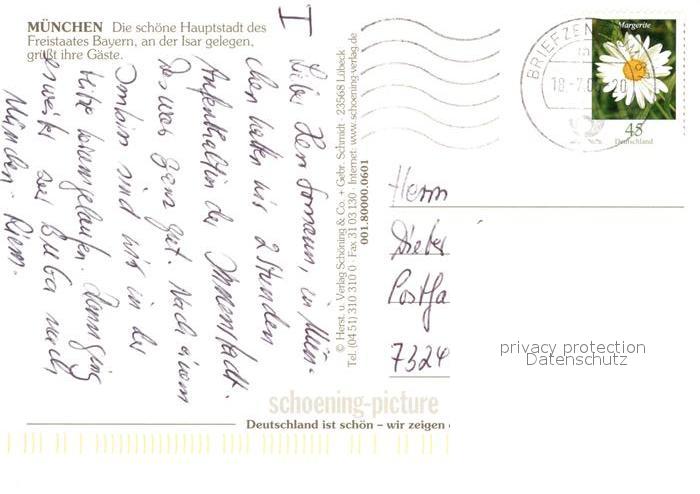 MÜNCHEN Die schöne Hauptstadt des
Freistaates Bayern, an der Isar gelegen,
grüßt ihre Gäste.
I
Liebe Herr in Mün-
chen hatten wir 2 Stunden
Aufenthalt in der Innenstadt.
Das war ganz gut. Nach einem
Imbiss sind wir in der
Hitze herumgelaufen. Dann ging
es weiter zur BUGA nach
München-Riem.
© Herst. u. Verlag Schöning & Co. + Gebr. Schmidt · 23568 Lübeck
Tel. (04 51) 310 310 0 · Fax 31 03 130 · Internet: www.schoening-verlag.de
001.80000.0601
BRIEFZEN
18.-7.0 -20
Margerite
45
Deutschland
Herrn
Dieter
Postfa
7324
privacy protection
Datenschutz
schoening-picture
Deutschland ist schön – wir zeigen